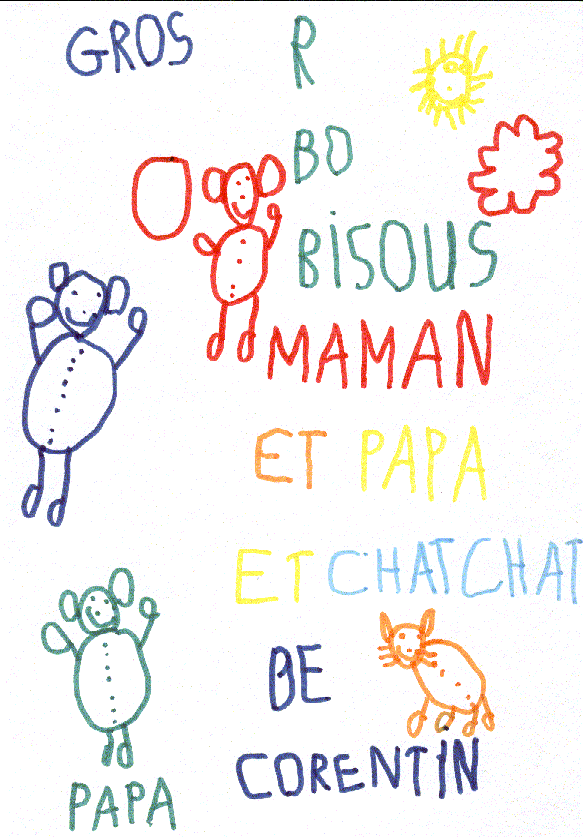 GROS R
BO
BiSOUS
MAMAN
ET PAPA
ET CHATCHAT
BE
CORENTIN
PAPA